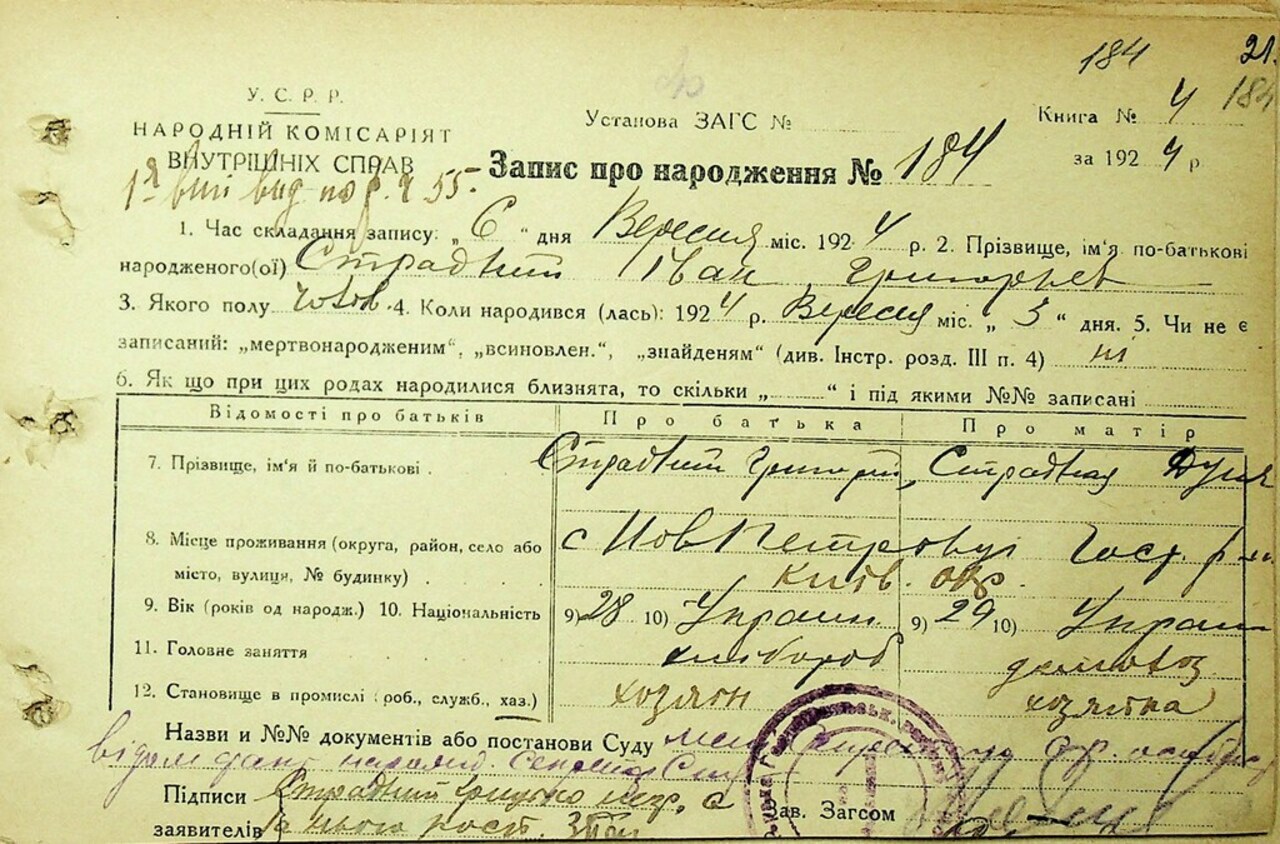 184 21.
У. С. Р. Р.
НАРОДНІЙ КОМІСАРІЯТ
ВНУТРІШНІХ СПРАВ
Установа ЗАГС №
Книга № 4 184
за 1924 р
Запис про народження № 184
55.
1. Час складання запису: „6“ дня Вересня міс. 1924 р. 2. Прізвище, ім'я по-батькові
народженого(ої) Страдний Іван Григорьев
3. Якого полу чолов. 4. Коли народився (лась): 1924 р. Вересня міс. „3“ дня. 5. Чи не є
записаний: „мертвонародженим“, „всиновлен.“, „знайденям“ (див. Інстр. розд. III п. 4) ні
6. Як що при цих родах народилися близнята, то скільки „ “ і під якими №№ записані
Відомості про батьків Про батька Про матір
7. Прізвище, ім'я й по-батькові . Страдний Григорій, Страдная
8. Місце проживання (округа, район, село або с Нов Петровці Гост. р
місто, вулиця, № будинку) . Київ. окр.
9. Вік (років од народж.) 10. Національність 9) 28 10) Украин 9) 29 10) Украин
11. Головне заняття хлібороб домогоз
12. Становище в промислі (роб., служб., хаз.) хозяин хозяйка
Назви и №№ документів або постанови Суду
Підписи Страдний Грицько негр. а
заявителів за нього рост. Зав. Загсом